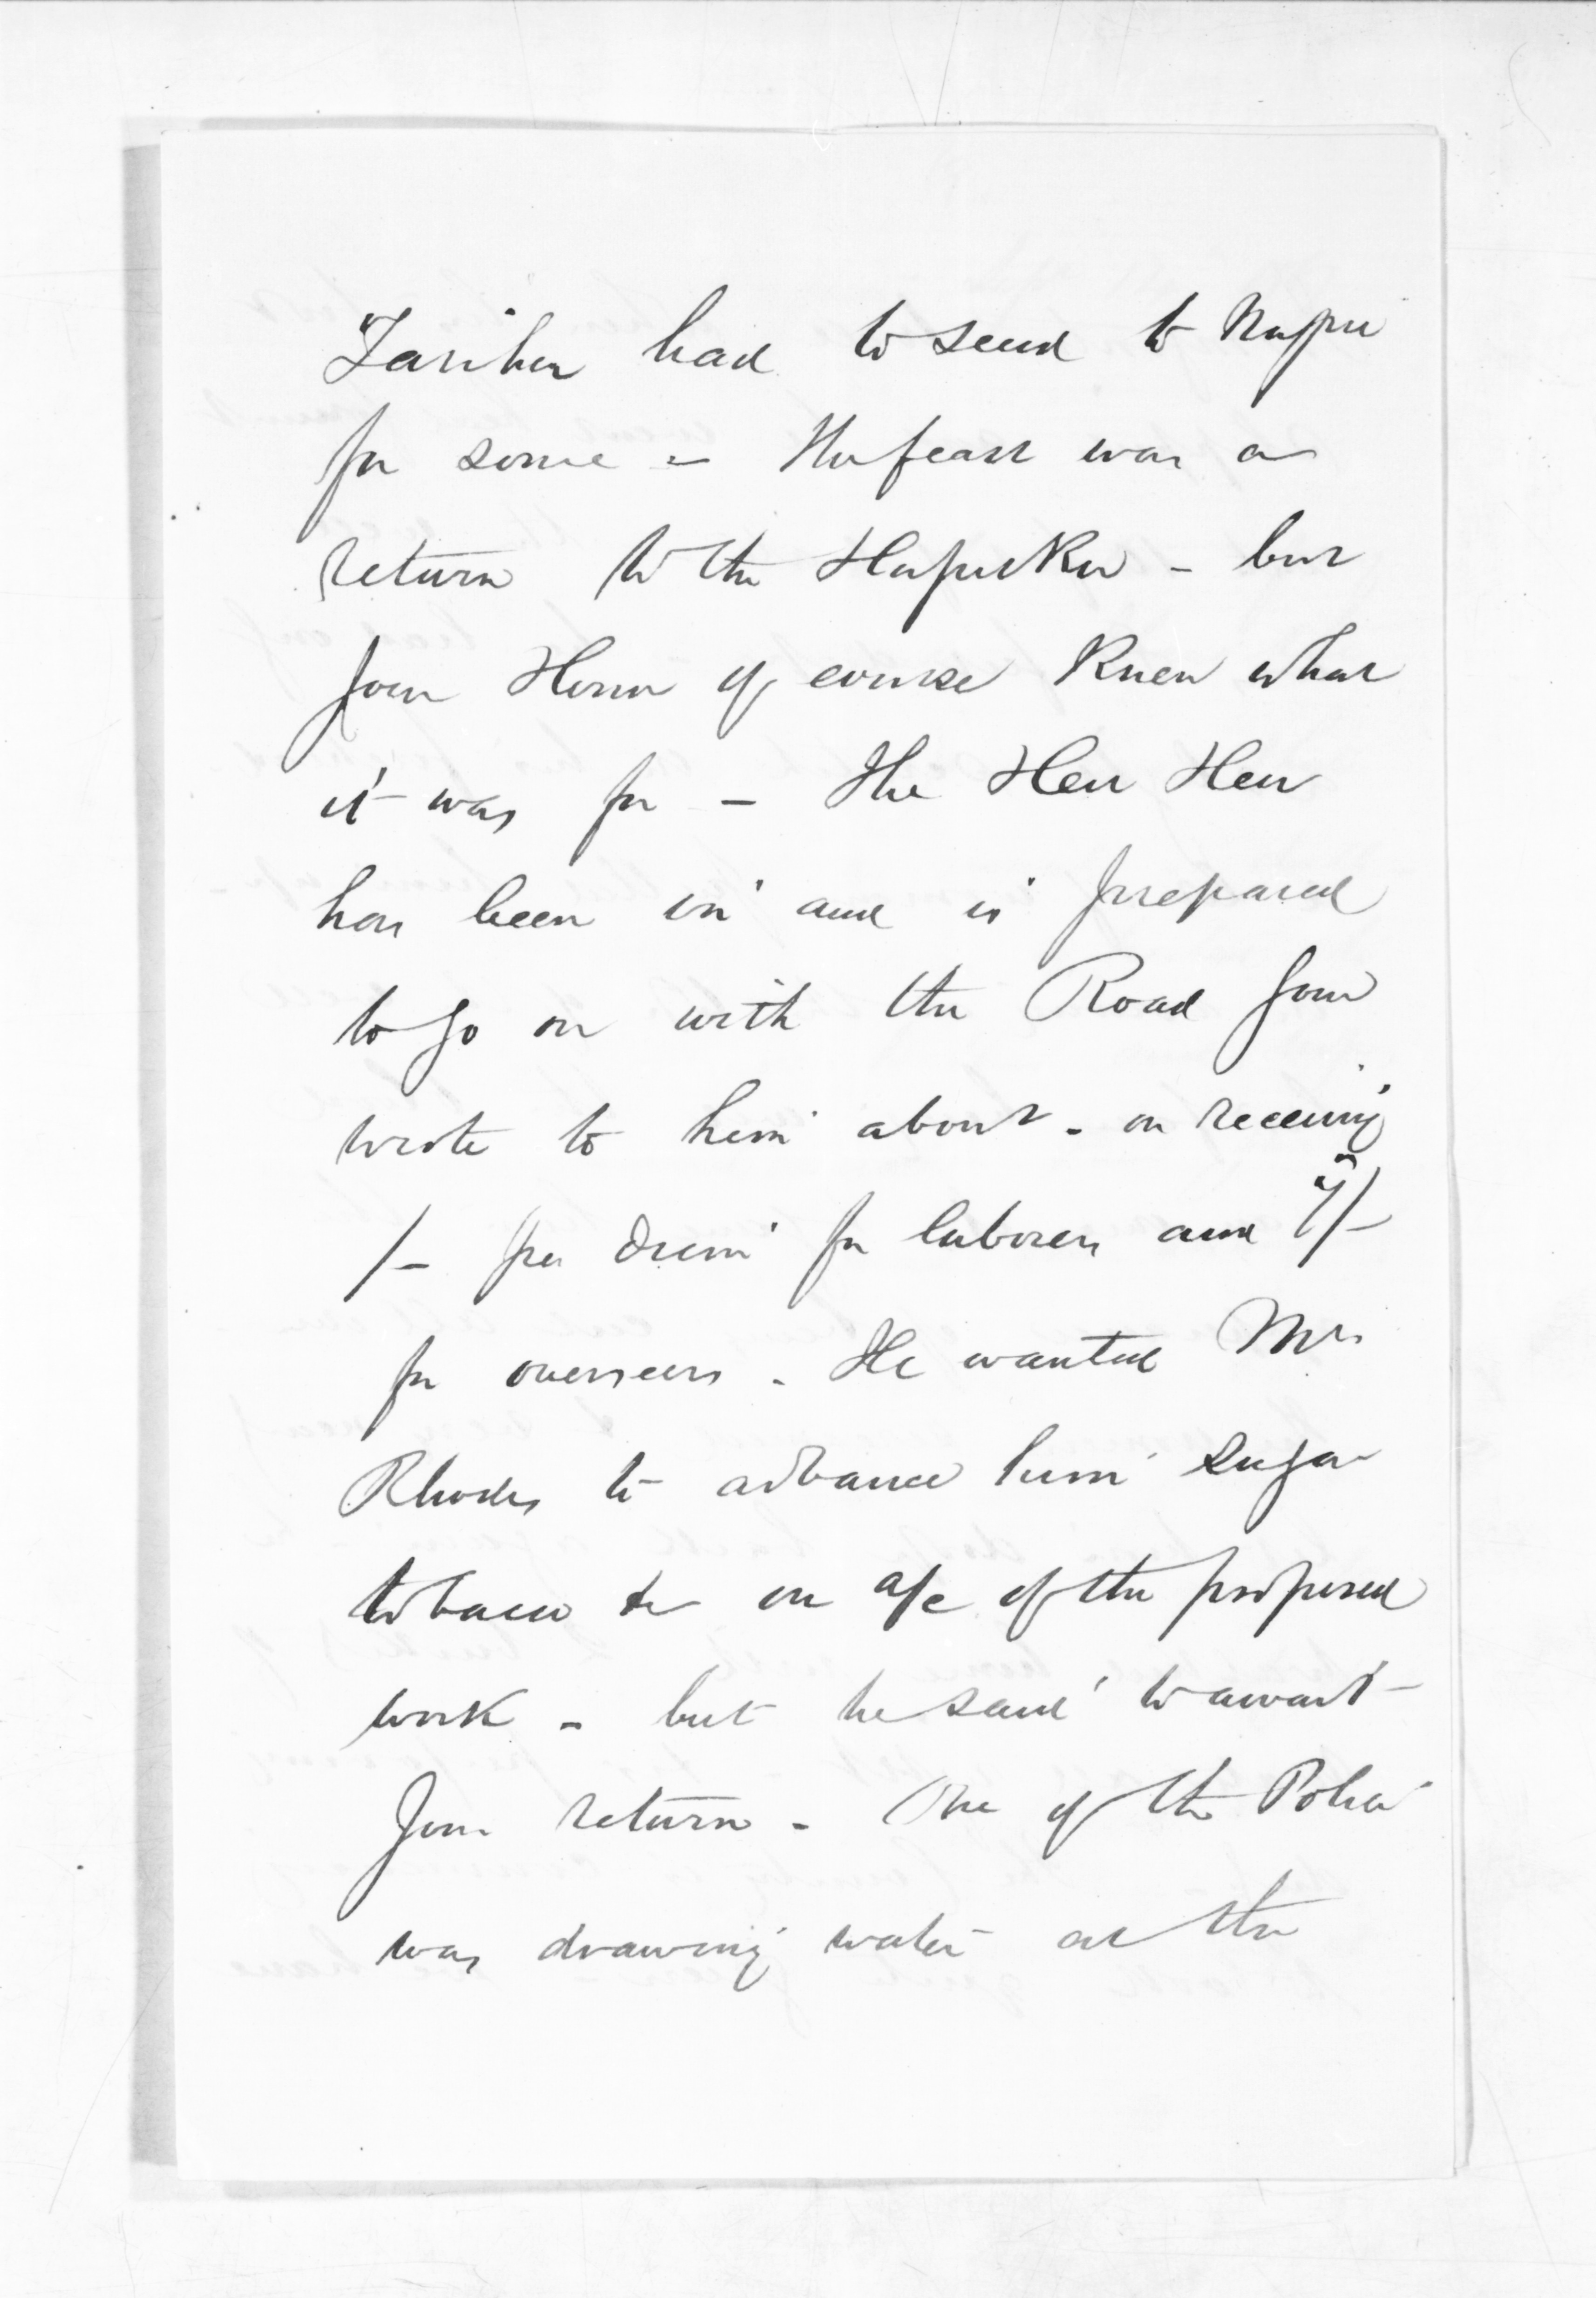 Tariha had to send to Napier
for some - The feast was a
return to the Hapuku - but
your Honor of course knew what
it was for - The Heu Heu
has been in and is prepared
to go on with the Road your
wrote to him about - on receiving
/- per diem for laborers and 7/-
for overseers. He wanted Mr
Rhodes to advance him sugar
tobacco &c on a/c of the proposed
work - but he said to await
your return - One of the Police
was drawing water at the